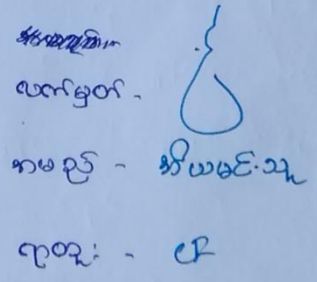 လက်မှတ် -
အမည် - အိယမင်းသူ
ရာထူး -